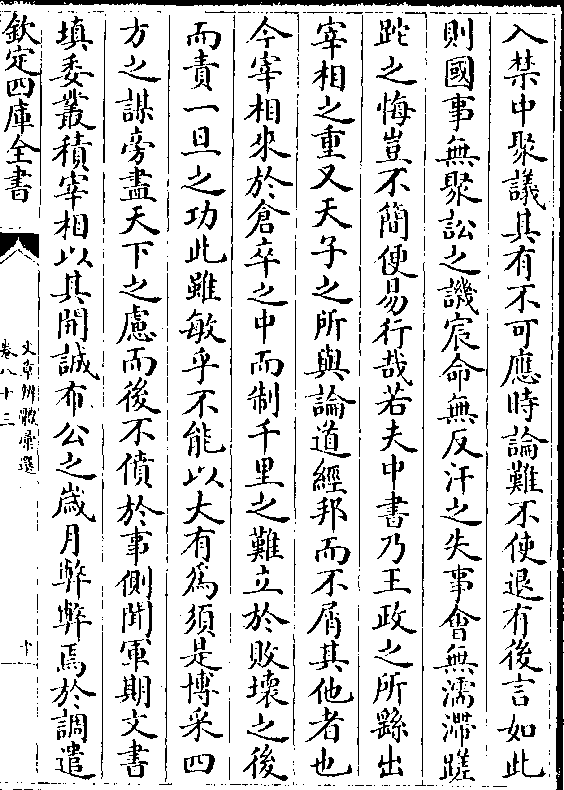 入禁中聚議其有不可應時論難不使退有後言如此
則國事無聚訟之譏宸命無反汗之失事㑹無濡滯蹉
跎之悔豈不簡便易行哉若夫中書乃王政之所繇出
宰相之重又天子之所與論道經邦而不屑其他者也
今宰相來於倉卒之中而制千里之難立於敗壞之後
而責一旦之功此雖敏乎不能以大有爲須是博采四
方之謀旁盡天下之慮而後不僨於事側聞軍期文書
填委叢積宰相以其開誠布公之歳月弊弊焉於調遣
欽定四庫全書
文章辨體彚選
卷八十三
十